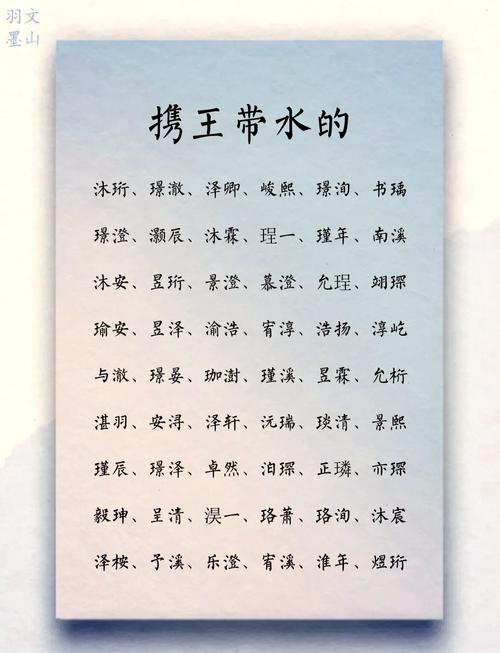 羽文
墨山
携王带水的
沐珩、璟澈、泽卿、峻熙、璟洵、书瑀
璟澄、灏辰、沐霖、珵一、瑾年、南溪
沐安、昱珩、景澄、慕澄、允珵、翊琛
瑜安、昱泽、渝浩、宥淳、浩扬、淳屹
与澈、璟晏、珈澍、瑾溪、昱霖、允析
湛羽、安浔、泽轩、沅瑞、琰清、景熙
瑾辰、璟泽、卓然、洎琛、正璘、亦琛
毅珅、呈清、淏一、珞萧、珞洵、沐宸
泽桉、予溪、乐澄、宥溪、淮年、煜珩